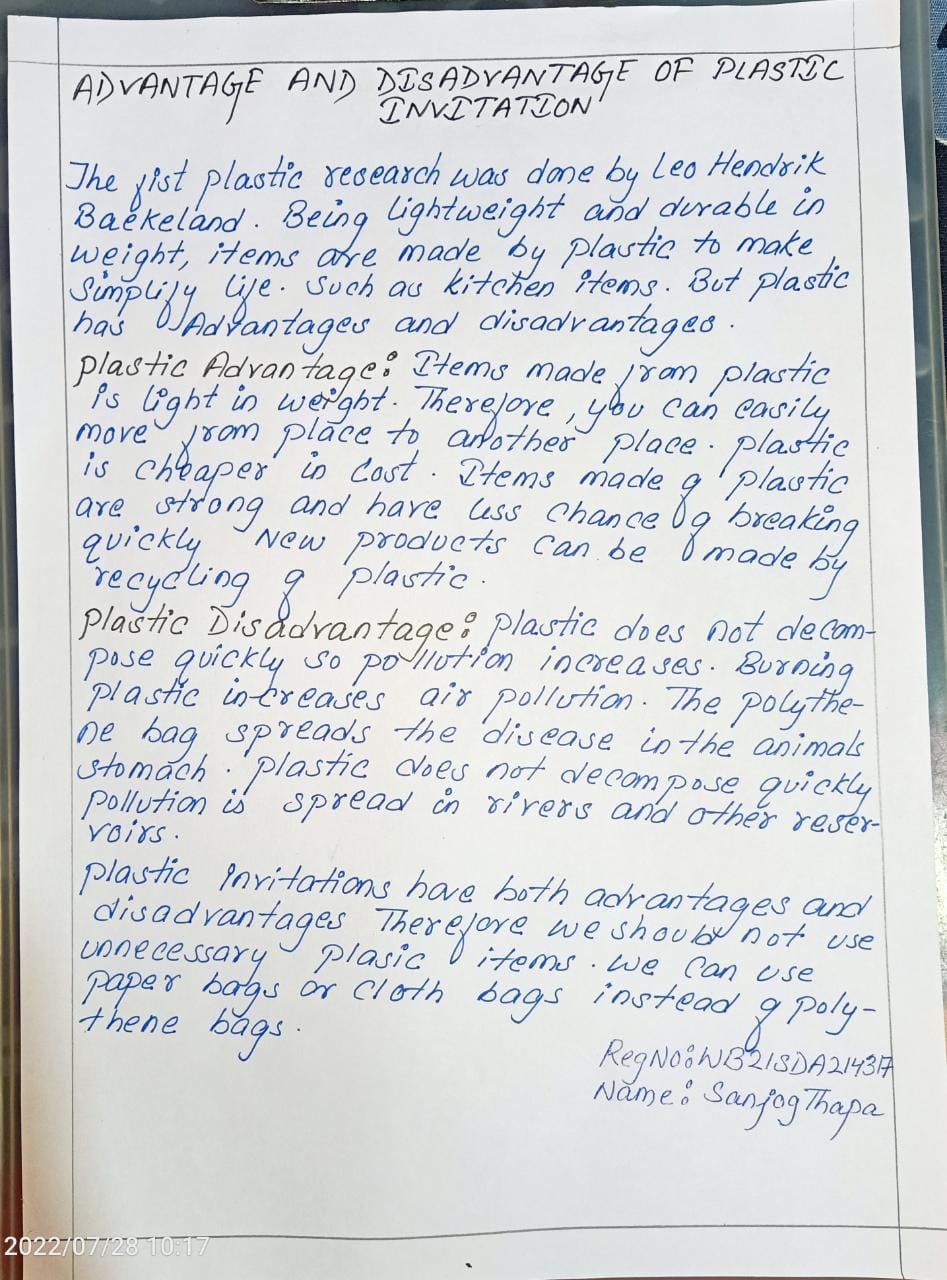 ADVANTAGE AND DISADVANTAGE OF PLASTIC
INVITATION
The fist plastic research was done by Leo Hendrik
Baekeland. Being lightweight and durable in
weight, items are made by plastic to make
Simplify life. Such as kitchen items. But plastic
has Advantages and disadvantages.
Plastic Advantage: Items made from plastic
is light in weight. Therefore, you can easily
move from place to another place. plastic
is cheaper in cost. Items made of plastic
are strong and have less chance of breaking
quickly New products can be made by
recycling of plastic.
Plastic Disadvantage: plastic does not decom-
pose quickly so pollution increases. Burning
plastic increases air pollution. The polythe-
ne bag spreads the disease in the animals
stomach. plastic does not decompose quickly
pollution is spread in rivers and other reser-
voirs.
plastic invitations have both advantages and
disadvantages Therefore we should not use
unnecessary plasic items. we can use
paper bags or cloth bags instead of poly-
thene bags.
RegNo:WB21SDA214317
Name: Sanjog Thapa
2022/07/28 10:17